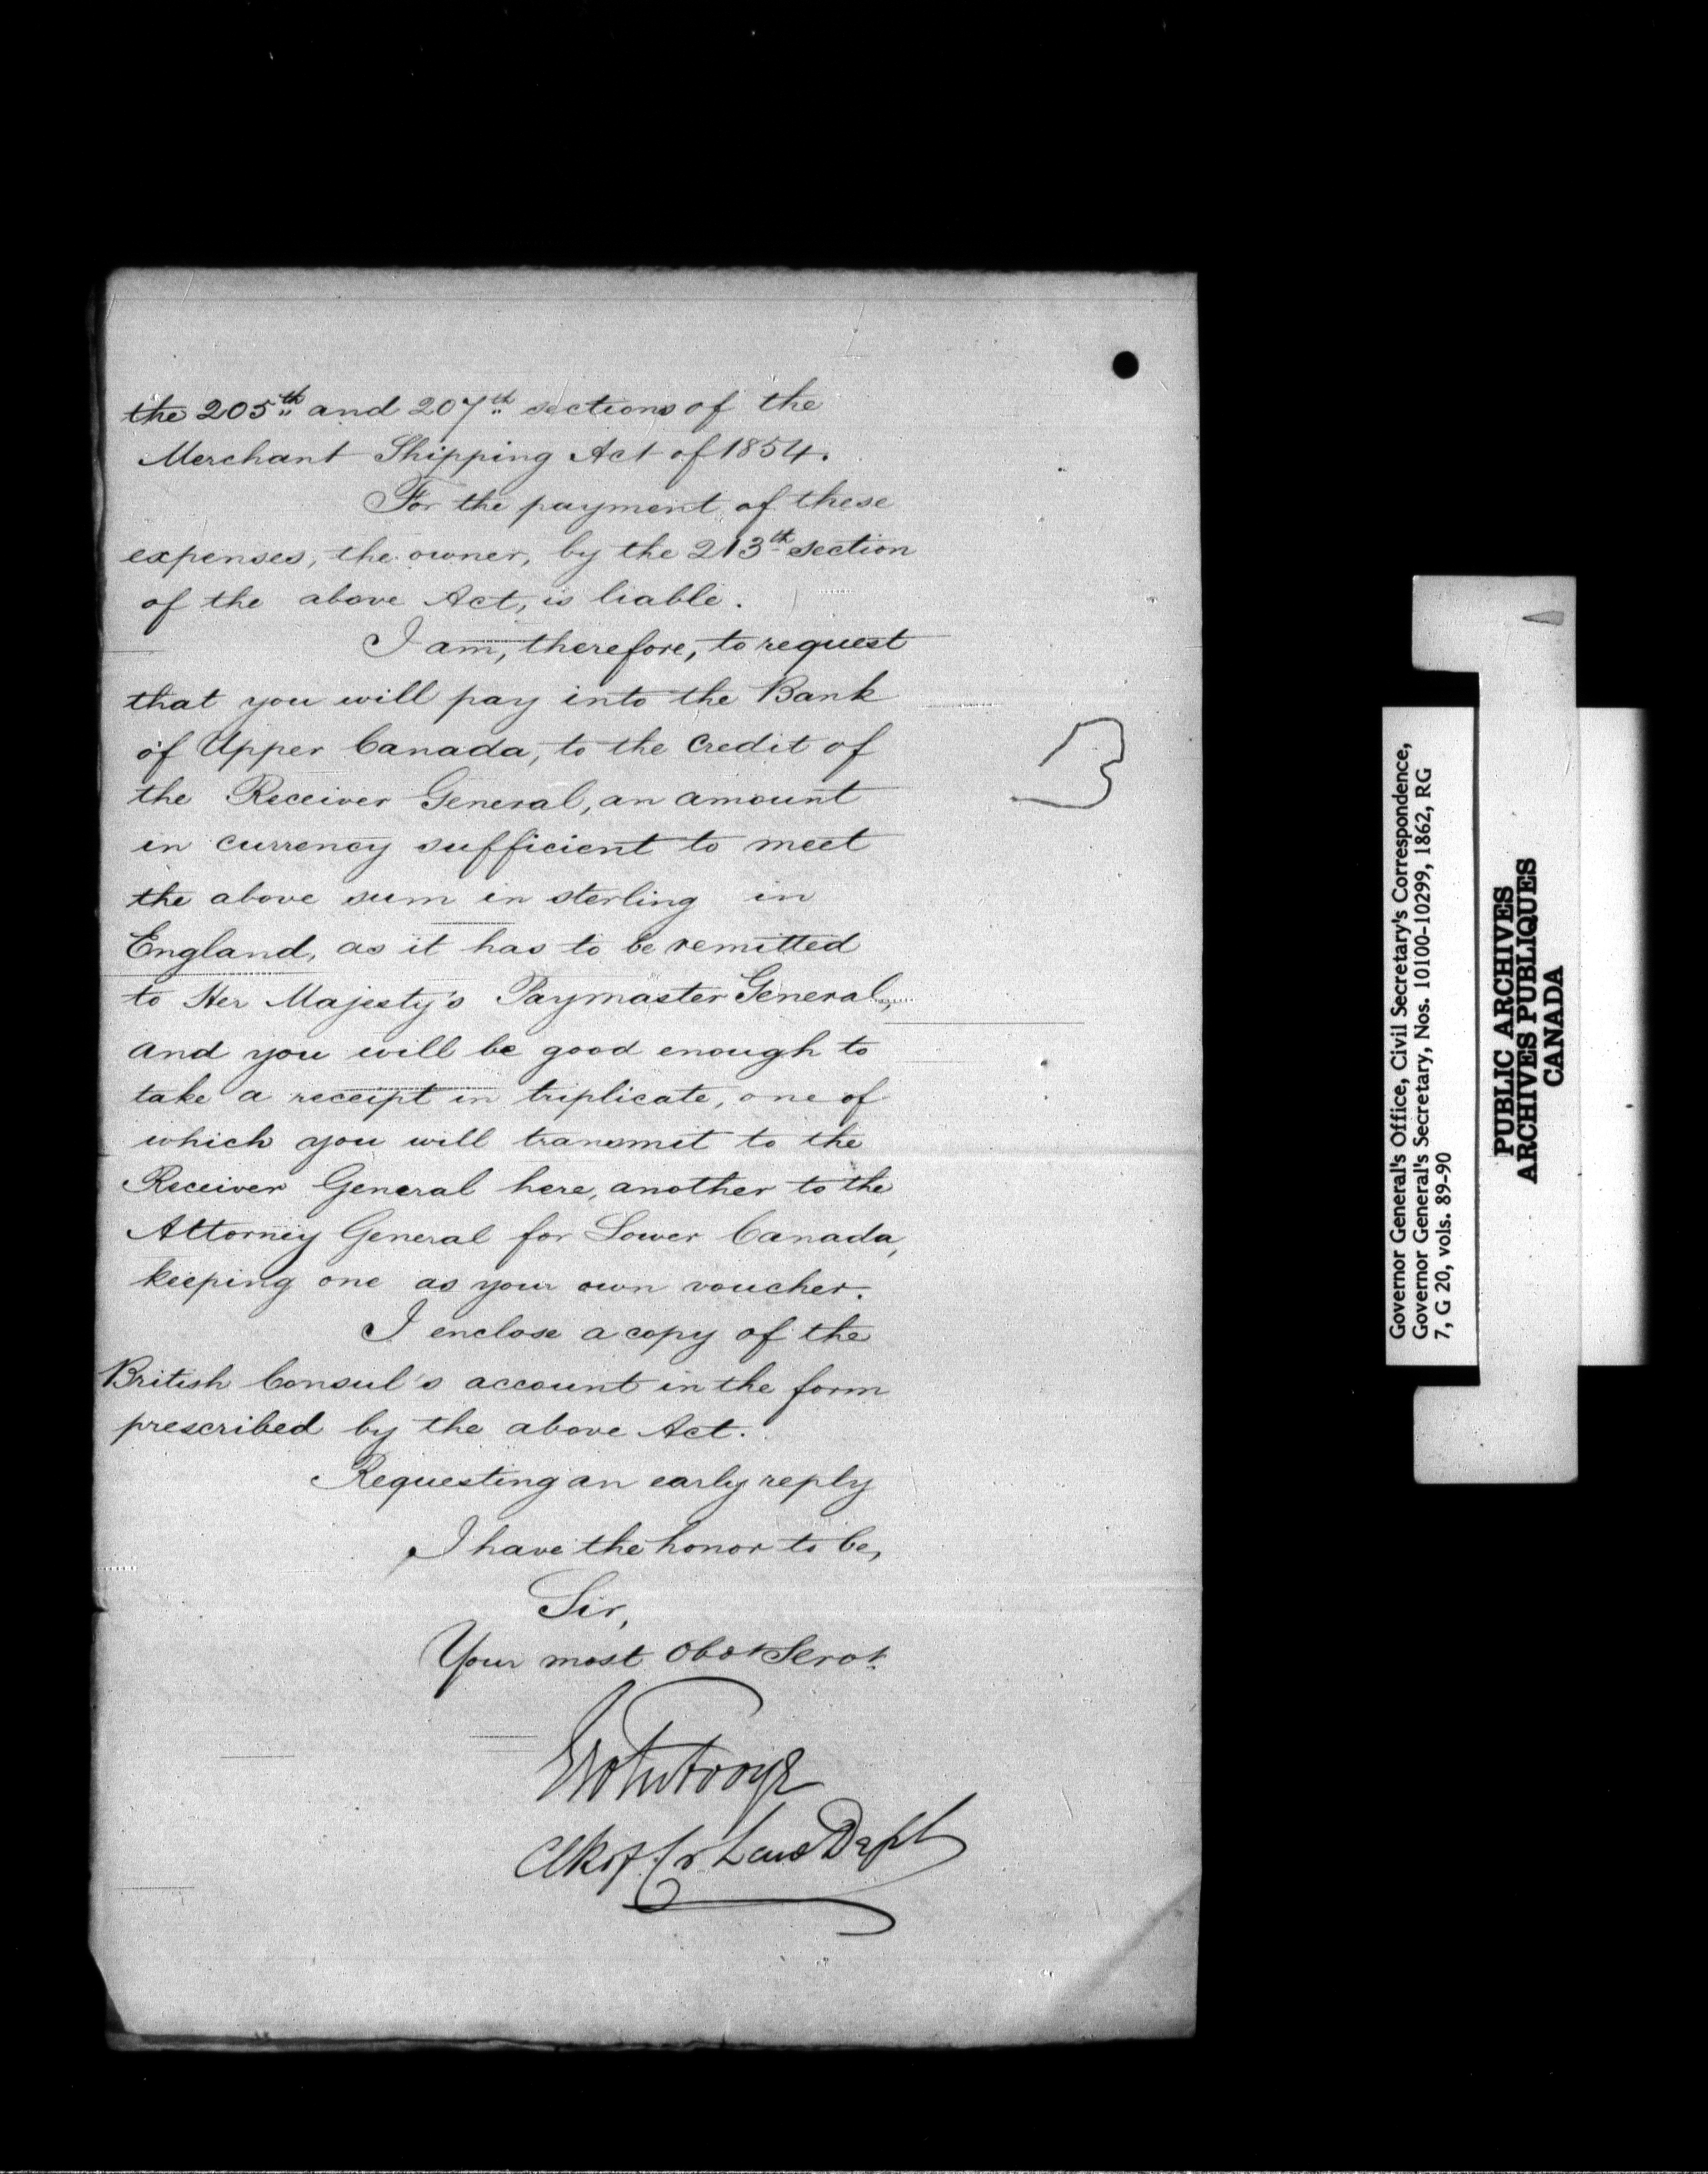 the 205th and 207th sections of the
Merchant Shipping Act of 1854.
For the payment of these
expenses, the owner, by the 213th section
of the above Act, is liable.
I am, therefore, to request
that you will pay into the Bank
of Upper Canada, to the credit of
the Receiver General, an amount
in currency sufficient to meet
the above sum in sterling in
England, as it has to be remitted
to Her Majesty's Paymaster General,
and you will be good enough to
take a receipt in triplicate, one of
which you will transmit to the
Receiver General here, another to the
Attorney General for Lower Canada,
keeping one as your own voucher.
I enclose a copy of the
British Consul's account in the form
prescribed by the above Act.
Requesting an early reply
I have the honor to be,
Sir,
Your most Obdt Servt.
Clk of Cr Law Dept
Governor General's Office, Civil Secretary's Correspondence,
Governor General's Secretary, Nos. 10100-10299, 1862, RG
7, G 20, vols. 89-90
PUBLIC ARCHIVES
ARCHIVES PUBLIQUES
CANADA